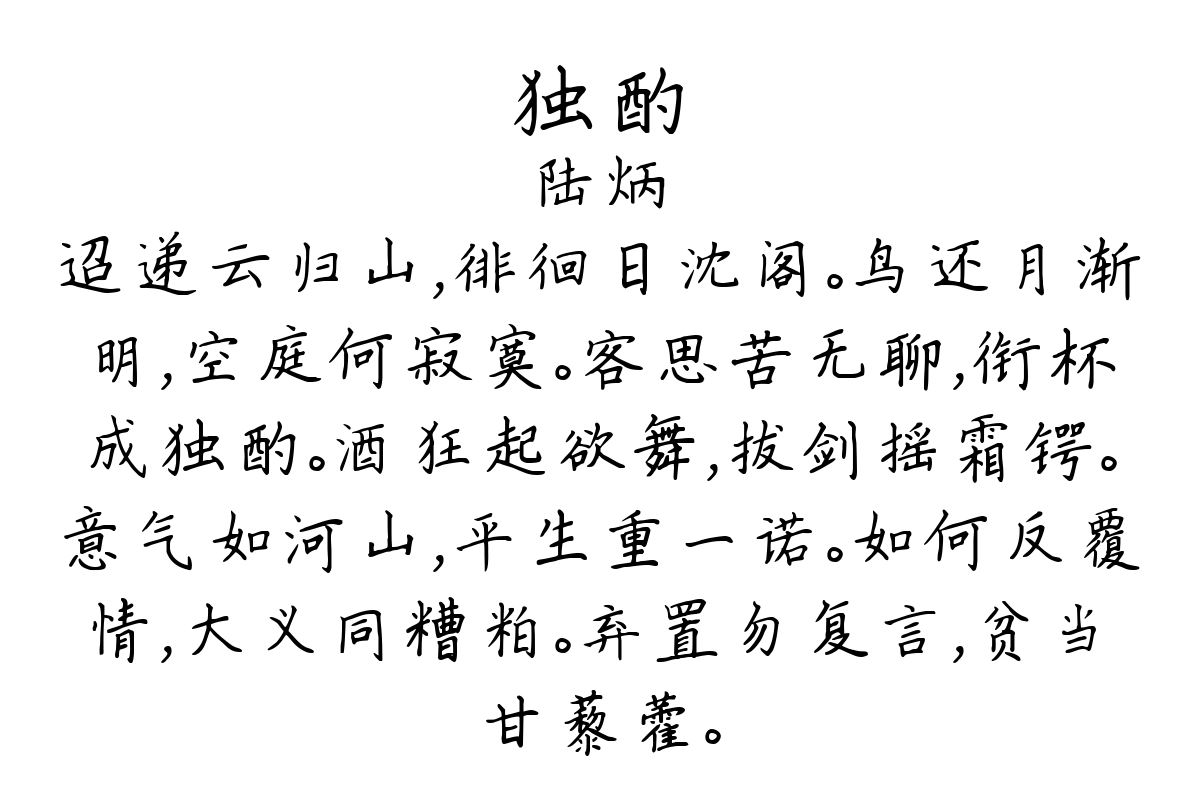 独酌
陆炳
迢递云归山,徘徊日沈阁。鸟还月渐
明,空庭何寂寞。客思苦无聊,衔杯
成独酌。酒狂起欲舞,拔剑摇霜锷。
意气如河山,平生重一诺。如何反覆
情,大义同糟粕。弃置勿复言,贫当
甘藜藿。